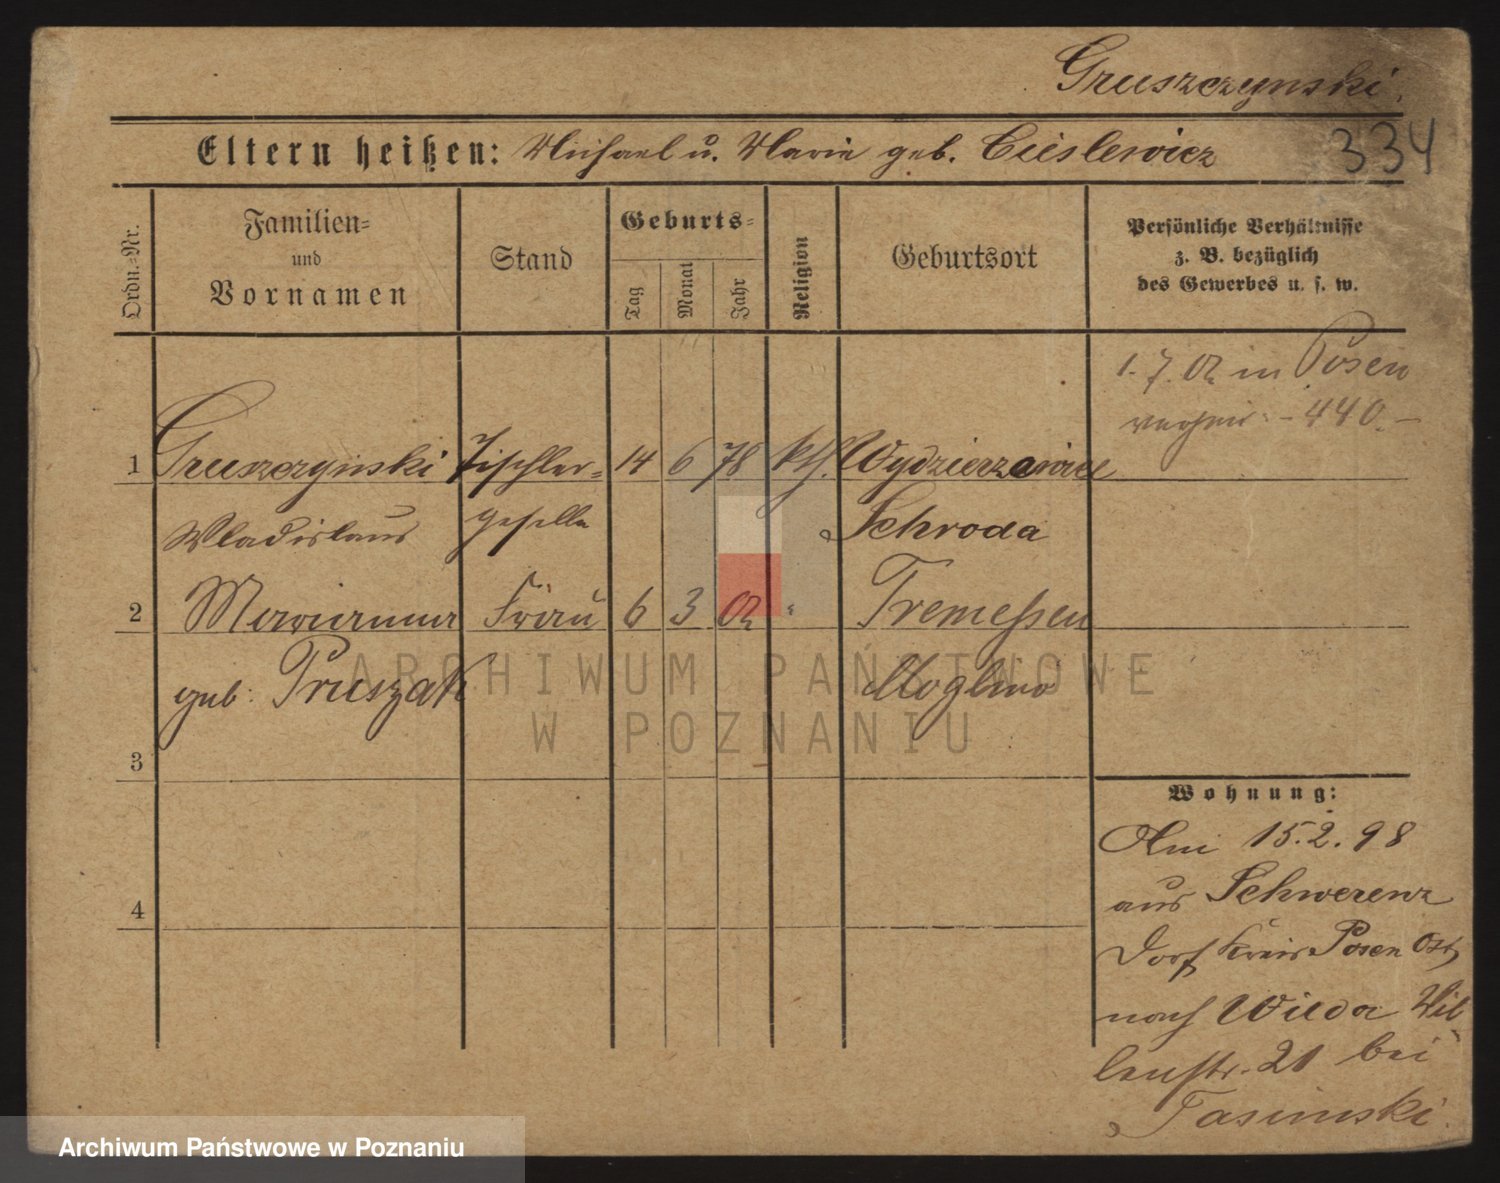 Gruszczynski.
334
Eltern heißen: Michael u. Marie geb. Cieslewicz
Ordn.-Nr.
Familien-
und
Vornamen
Stand
Geburts-
Tag
Monat
Jahr
Religion
Geburtsort
Persönliche Verhältnisse
z. B. bezüglich
des Gewerbes u. s. w.
1. 7. 02 in Posen
440.
1 Gruszczynski Tischler- 14 6 78 kth. Wydzierzewice
Wladislaus geselle Schroda
2 Marianna Frau 6 3 02 " Tremessen
geb. Pruszak Moglino
ARCHIWUM PAŃSTWOWE
W POZNANIU
3
4
Wohnung:
Am 15.2.98
aus Schwerenz
Dorf Kreis Posen Ost
nach Wilda Wil-
lenstr. 21 bei
Tasinski.
Archiwum Państwowe w Poznaniu